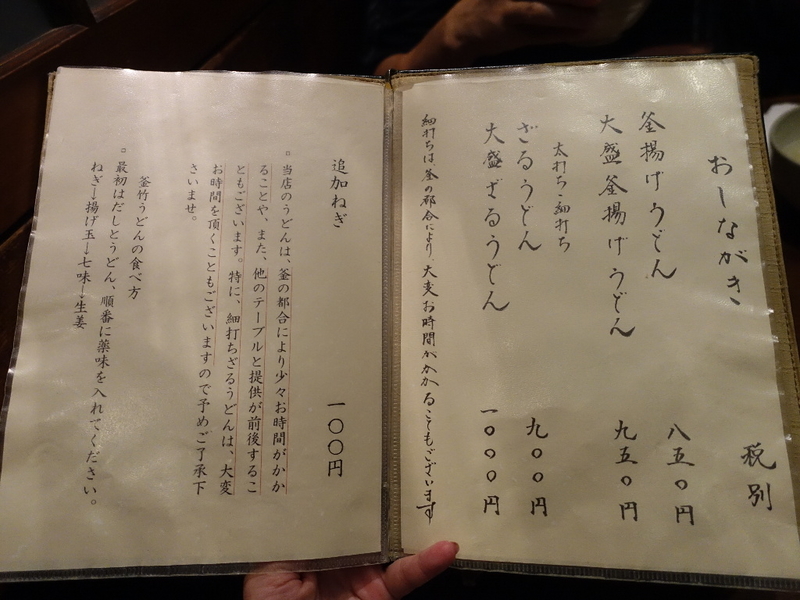 おしながき
税別
釜揚げうどん 八五〇円
大盛釜揚げうどん 九五〇円
太打ち・細打ち
ざるうどん 九〇〇円
大盛ざるうどん 一〇〇〇円
細打ちは、釜の都合により、大変お時間がかかることもございます
追加ねぎ 一〇〇円
▫当店のうどんは、釜の都合により少々お時間がかか
ることや、また、他のテーブルと提供が前後するこ
ともございます。特に、細打ちざるうどんは、大変
お時間を頂くこともございますので予めご了承下
さいませ。
釜竹うどんの食べ方
▫最初はだしとうどん、順番に薬味を入れてください。
ねぎ→揚げ玉→七味→生姜